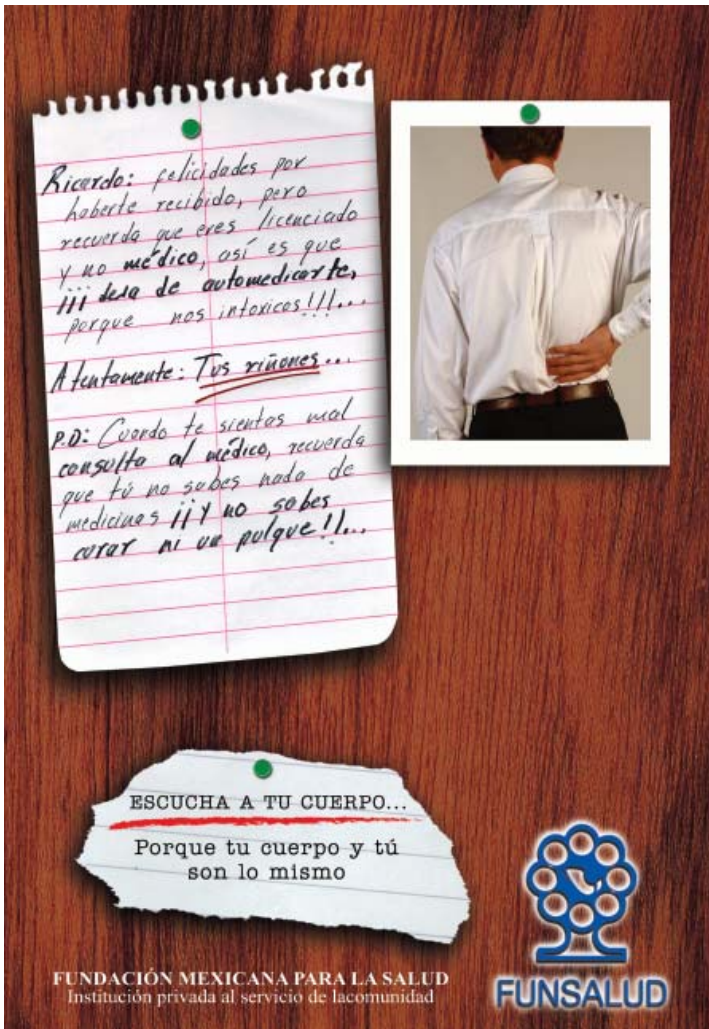 Ricardo: felicidades por
haberte recibido, pero
recuerda que eres licenciado
y no médico, así es que
¡¡¡ deja de automedicarte,
porque nos intoxicas!!!...
Atentamente: Tus riñones...
P.D: Cuando te sientas mal
consulta al médico, recuerda
que tú no sabes nada de
medicinas ¡¡¡Y no sabes
curar ni un pulque!!...
ESCUCHA A TU CUERPO...
Porque tu cuerpo y tú
son lo mismo
FUNDACIÓN MEXICANA PARA LA SALUD
Institución privada al servicio de lacomunidad
FUNSALUD